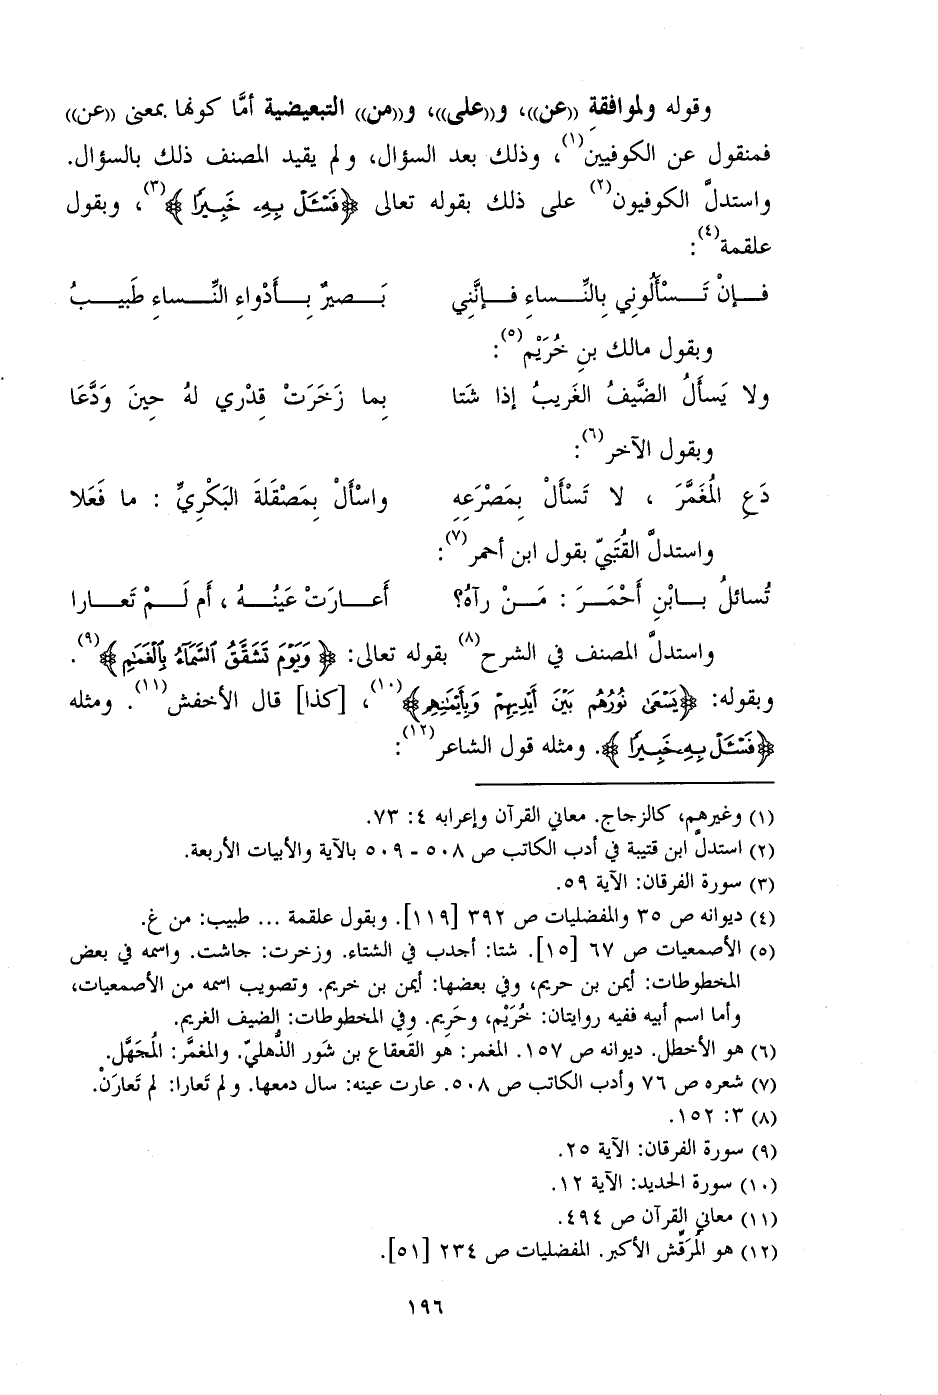 وقوله ولموافقةِ ((عن))، و((على))، و((من)) التبعيضية أمَّا كونها بمعنى ((عن))
فمنقول عن الكوفيين(١)، وذلك بعد السؤال، ولم يقيد المصنف ذلك بالسؤال.
واستدلَّ الكوفيون(٢) على ذلك بقوله تعالى ﴿فَسْـَٔلْ بِهِۦ خَبِيرًا﴾(٣)، وبقول
علقمة(٤):
فـإنْ تَـسْأَلُوني بِالنِّـساءِ فـإنَّني بَـصيرٌ بـأَدْواءِ النِّـساءِ طَبيـبُ
وبقول مالك بنِ خُرَيْم(٥):
ولا يَسأَلُ الضَّيفُ الغَريبُ إذا شَتا بِما زَخَرَتْ قِدْري لهُ حِينَ وَدَّعَا
وبقول الآخر(٦):
دَعِ المُغَمَّرَ ، لا تَسْأَلْ بِمَصْرَعِهِ واسْأَلْ بِمَصْقَلةَ البَكْرِيِّ : ما فَعَلا
واستدلَّ القُتَبيّ بقول ابن أحمر(٧):
تُسائلُ بـابْنِ أَحْمَـرَ : مَـنْ رآهُ؟ أَعـارَتْ عَينُـهُ ، أم لَـمْ تَعـارا
واستدلَّ المصنف في الشرح(٨) بقوله تعالى: ﴿وَيَوْمَ تَشَقَّقُ ٱلسَّمَآءُ بِٱلْغَمَٰمِ﴾(٩).
وبقوله: ﴿يَسْعَىٰ نُورُهُم بَيْنَ أَيْدِيهِمْ وَبِأَيْمَٰنِهِم﴾(١٠)، [كذا] قال الأخفش(١١). ومثله
﴿فَسْـَٔلْ بِهِۦ خَبِيرًا﴾. ومثله قول الشاعر(١٢):
(١) وغيرهم، كالزجاج. معاني القرآن وإعرابه ٤: ٧٣.
(٢) استدلَّ ابن قتيبة في أدب الكاتب ص ٥٠٨ ـ ٥٠٩ بالآية والأبيات الأربعة.
(٣) سورة الفرقان: الآية ٥٩.
(٤) ديوانه ص ٣٥ والمفضليات ص ٣٩٢ [١١٩]. وبقول علقمة ... طبيب: من غ.
(٥) الأصمعيات ص ٦٧ [١٥]. شتا: أجدب في الشتاء. وزخرت: جاشت. واسمه في بعض
المخطوطات: أيمن بن حريم، وفي بعضها: أيمن بن خريم. وتصويب اسمه من الأصمعيات،
وأما اسم أبيه ففيه روايتان: خُرَيْم، وحَرِيم. وفي المخطوطات: الضيف الغريم.
(٦) هو الأخطل. ديوانه ص ١٥٧. المغمر: هو القعقاع بن شَور الذُّهليّ. والمغمَّر: المُجَهَّل.
(٧) شعره ص ٧٦ وأدب الكاتب ص ٥٠٨. عارت عينه: سال دمعها. ولم تَعارا: لم تَعارَنْ.
(٨) ٣: ١٥٢.
(٩) سورة الفرقان: الآية ٢٥.
(١٠) سورة الحديد: الآية ١٢.
(١١) معاني القرآن ص ٤٩٤.
(١٢) هو المُرَقِّش الأكبر. المفضليات ص ٢٣٤ [٥١].
١٩٦